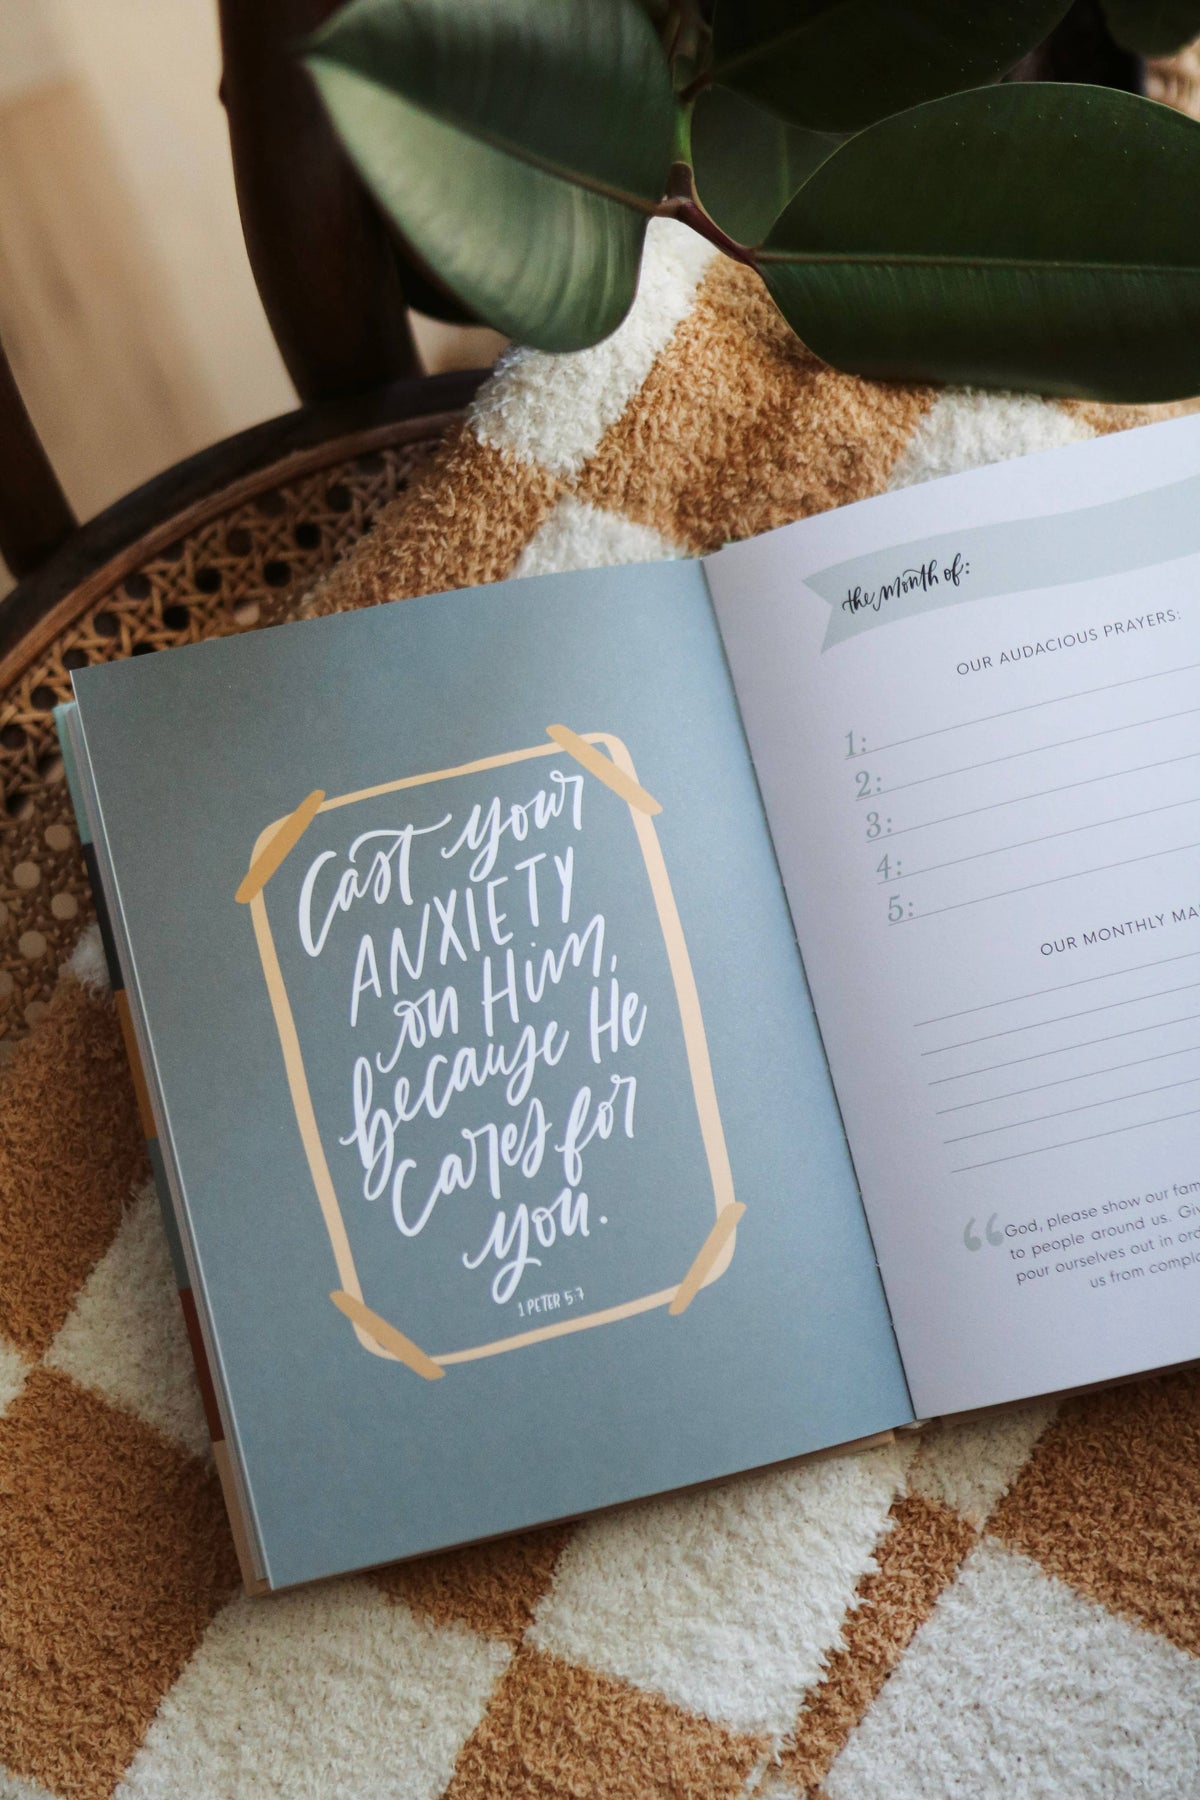 Cast your
ANXIETY
on Him,
because He
cares for
you.
1 PETER 5:7
the month of:
OUR AUDACIOUS PRAYERS:
1:
2:
3:
4:
5:
OUR MONTHLY
God, please show our
to people around us.
pour ourselves out in
us from